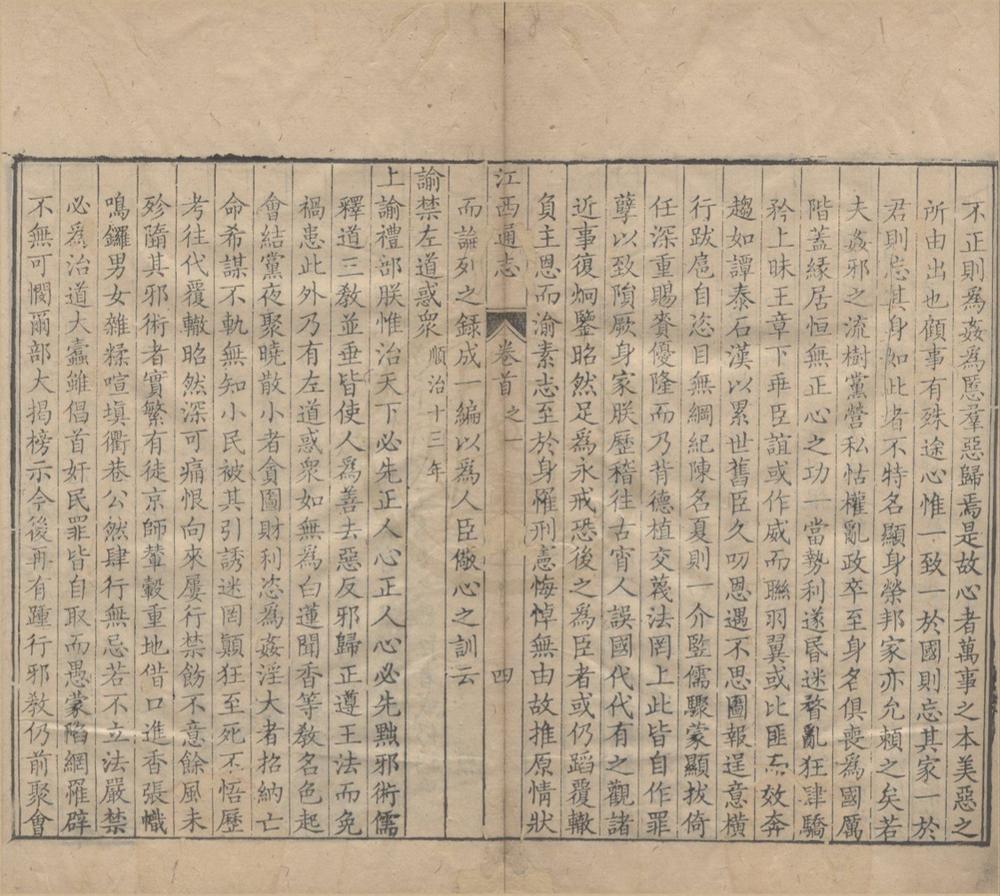 不正則為姦為慝羣惡歸焉是故心者萬事之本美惡之
所由出也顧事有殊途心惟一致一於國則忘其家一於
君則忘其身如此者不特名顯身榮邦家亦允賴之矣若
夫姦邪之流樹黨營私怙權亂政卒至身名俱喪為國厲
階蓋緣居恒無正心之功一當勢利遂昏迷瞀亂狂肆驕
矜上昧王章下乖臣誼或作威而聯羽翼或比匪而效奔
趨如譚泰石漢以累世舊臣久叨恩遇不思圖報逞意橫
行跋扈自恣目無綱紀陳名夏則一介豎儒驟蒙顯拔倚
任深重賜賚優隆而乃背德植交蔑法罔上此皆自作罪
孽以致隕厥身家朕歷稽徃古宵人誤國代代有之觀諸
近事復炯鑒昭然足為永戒恐後之為臣者或仍蹈覆轍
負主恩而渝素志至於身罹刑憲悔悼無由故推原情狀
江西通志 卷首之一 四
而論列之錄成一編以為人臣儆心之訓云
諭禁左道惑衆順治十三年
上諭禮部朕惟治天下必先正人心正人心必先黜邪術儒
釋道三教並垂皆使人為善去惡反邪歸正遵王法而免
禍患此外乃有左道惑衆如無為白蓮聞香等教名色起
會結黨夜聚曉散小者貪圖財利恣為姦淫大者招納亡
命希謀不軌無知小民被其引誘迷罔顛狂至死不悟歷
考往代覆轍昭然深可痛恨向來屢行禁飭不意餘風未
殄隨其邪術者實繁有徒京師輦轂重地借口進香張幟
鳴鑼男女雜糅喧塡衢巷公然肆行無忌若不立法嚴禁
必為治道大蠹雖倡首奸民罪皆自取而愚蒙陷網罹辟
不無可憫爾部大揭榜示今後再有踵行邪教仍前聚會